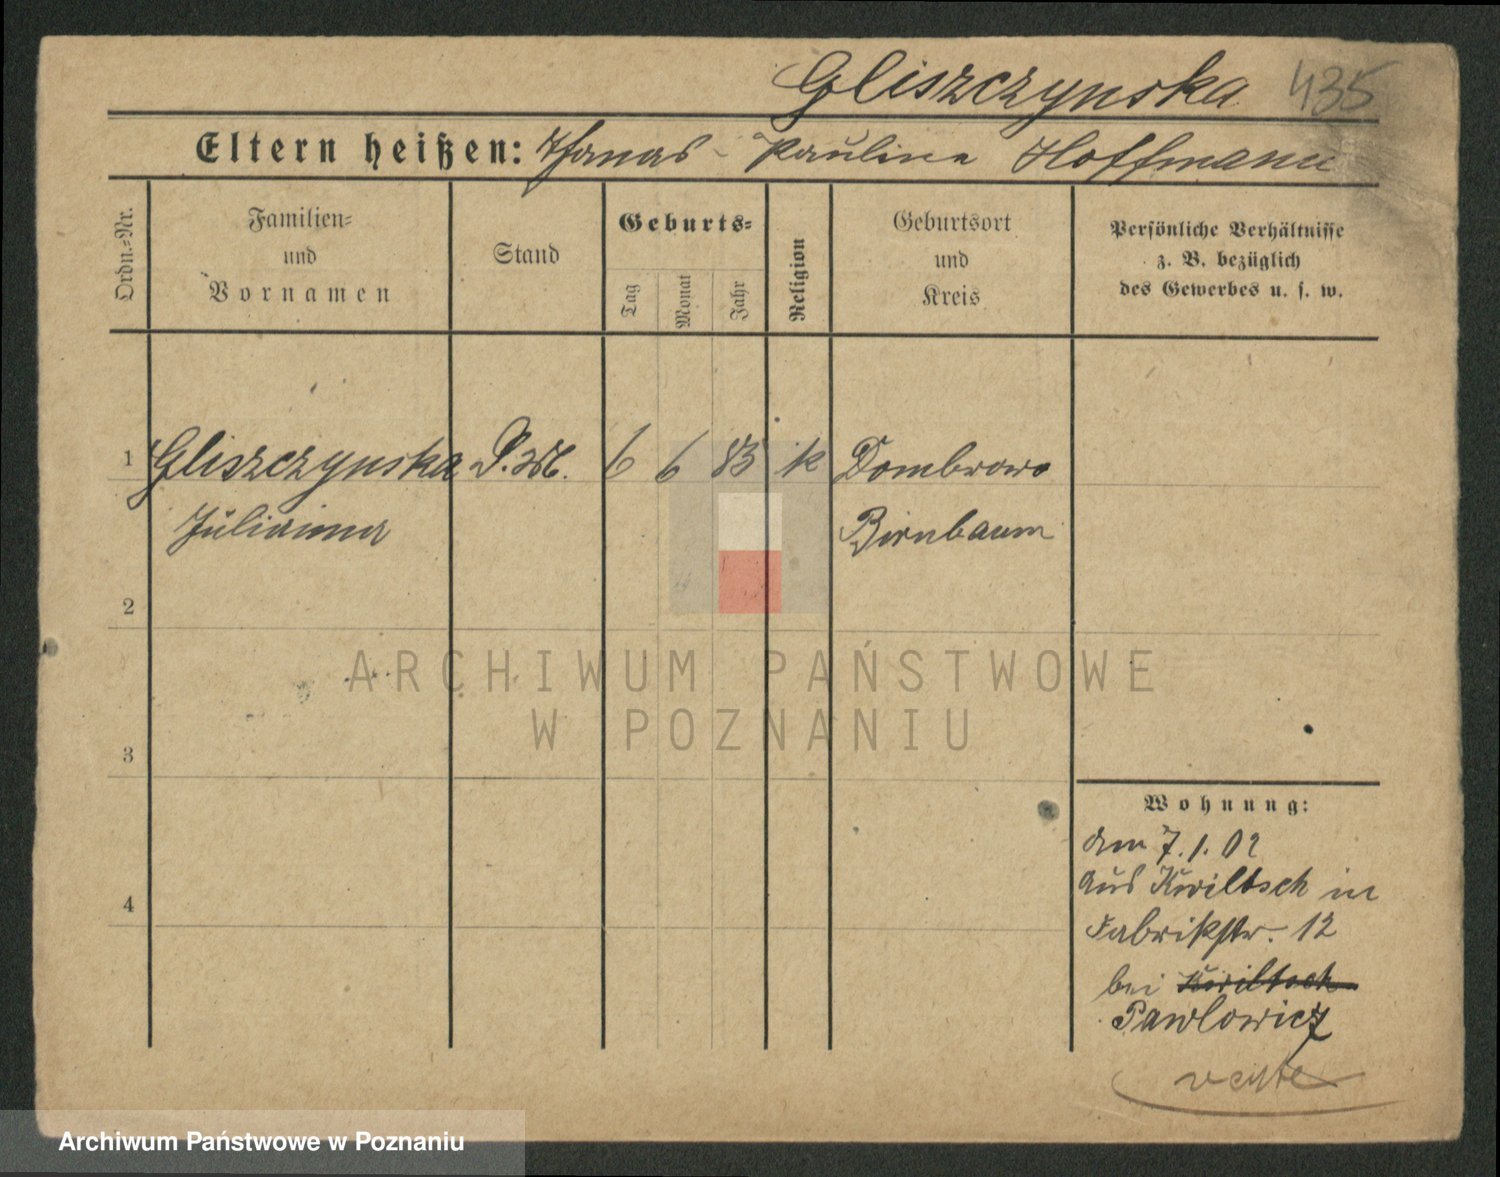 Gliszczynska 435
Eltern heißen: Paulina Hoffmann
Ordn.=Nr.
Familien=
und
Vornamen
Stand
Geburts=
Tag
Monat
Jahr
Religion
Geburtsort
und
Kreis
Persönliche Verhältnisse
z. B. bezüglich
des Gewerbes u. s. w.
1 Gliszczynska 6 6 83 k Dombrowo
Julianna Birnbaum
2
3
4
Wohnung:
am 7.1.02
aus Kwiltsch in
Fabrikstr. 12
bei Kwiltsch
Pawlowicz
ARCHIWUM PAŃSTWOWE
W POZNANIU
Archiwum Państwowe w Poznaniu